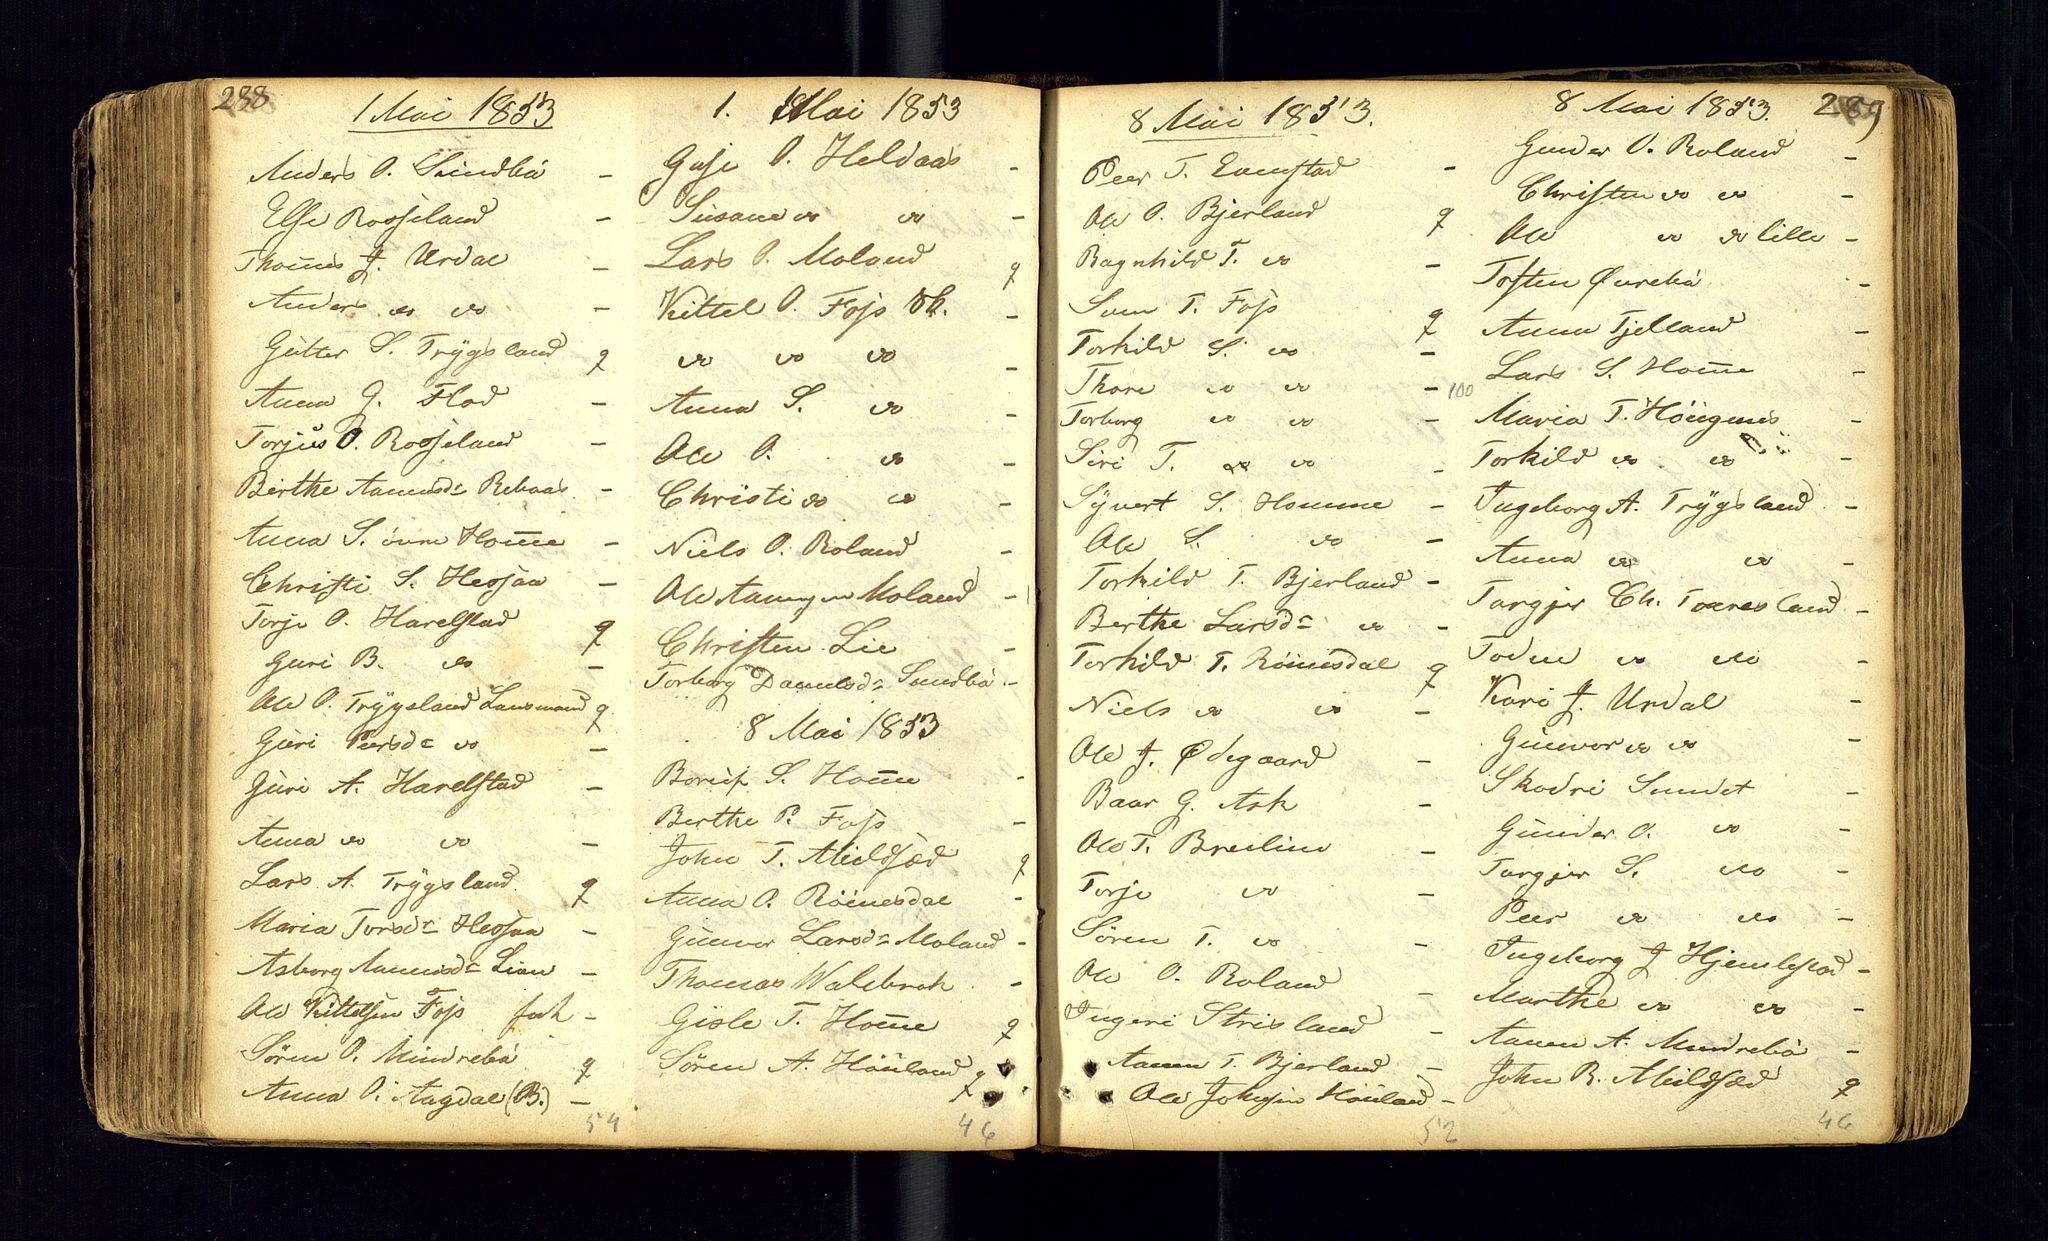 288
1 Mai 1853
Anders O. Sundbø -
Else Rosseland -
Thomes J. Urdal -
Anders do do -
Gutter S. Trygsland q
Anna G. Flod -
Torjus O. Rosseland -
Berthe Aanensd: Rebaas -
Anna S. øvre Home -
Christi S. Hessaa -
Torje O. Harelstad q
Guri B. do -
Ole O. Trygsland Lansmand q
Guri Peersd: do -
Guri A. Harelstad -
Anna do do -
Lars A. Trygsland q
Maria Torsd: Hessaa -
Asborg Aanensd: Lian -
Ole Kittelsen Foss -
Søren P. Mindrebø q
Anna O. Augdal (B.) -
54
1. Mai 1853
Guse O. Heldaas -
Susane do do -
Lars O. Moland q
Kittel O. Foss -
do do do -
Anna S. do -
Ole O. do -
Christi do do -
Niels O. Roland -
Ole Aanensen Moland -
Christen Lie -
Torborg Danielsd: Sundbø -
8 Mai 1853
S. Home -
Berthe P. Foss -
John T. Mieldsæd q
Anna O. Røinesdal -
Gunvor Larsd: Moland -
Thomas Walebrok -
Gisle T. Home q
Søren A. Høiland q
46
8 Mai 1853.
Peer T. -
Ole O. Bjerland q
Ragnhild T. do -
Sven T. Foss q
Torkild S. do -
Thore do do -
Torborg do do -
Siri T. do do -
Syvert S. Homme -
Ole S. do -
Torkild T. Bjerland -
Berthe Larsd: do -
Torkild T. Røinesdal q
Niels do do -
Ole J. Ødegaard -
Baar G. Ask -
Ole T. Breilien -
Torje do -
Søren T. do -
Ole O. Roland -
Ingeri Strisland -
Aanen T. Bjerland -
Ole Johnsen Høiland -
52
8 Mai 1853. 289
Gunder O. Roland -
Christen do do -
Ole do do lille -
Tosten Øvrebø -
Anna Tjelland -
100
Lars S. Home -
Maria T. Høugnes -
Torkild do do -
Ingeborg A. Trygsland -
Anna do do -
Targjer Ch. Toenesland -
Toden do do -
Kari J. Urdal -
Gunvor do do -
Skodri Sundet -
Gunder O. do -
Targjer S. do -
Peer do do -
Ingeborg J Hjemlestad -
Marthe do do -
Aanen A. Mundrebø -
John R. Mieldsæd q
46